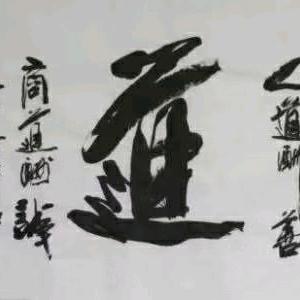 人道酬善
道
商道酬誠